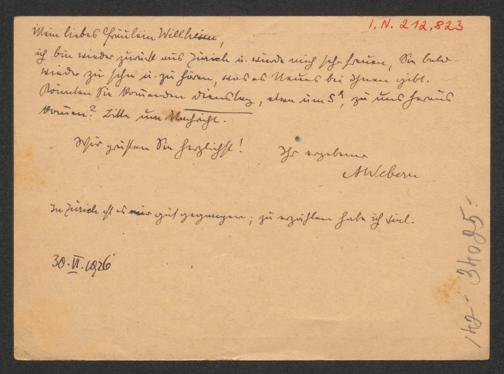 I.N. 212.823
Mein liebes Fräulein Willheim,
ich bin wieder zurück aus Zürich u. würde mich sehr freuen, Sie bald
wieder zu sehn u. zu hören, was es Neues bei Ihnen gibt.
Könnten Sie kommenden Dienstag, etwa um 5h, zu uns heraus
kommen? Bitte um Nachricht.
Wir grüßen Sie herzlichst!
Ihr ergebener
AWebern
In Zürich ist es mir gut gegangen; zu erzählen habe ich viel.
30.VI.1926